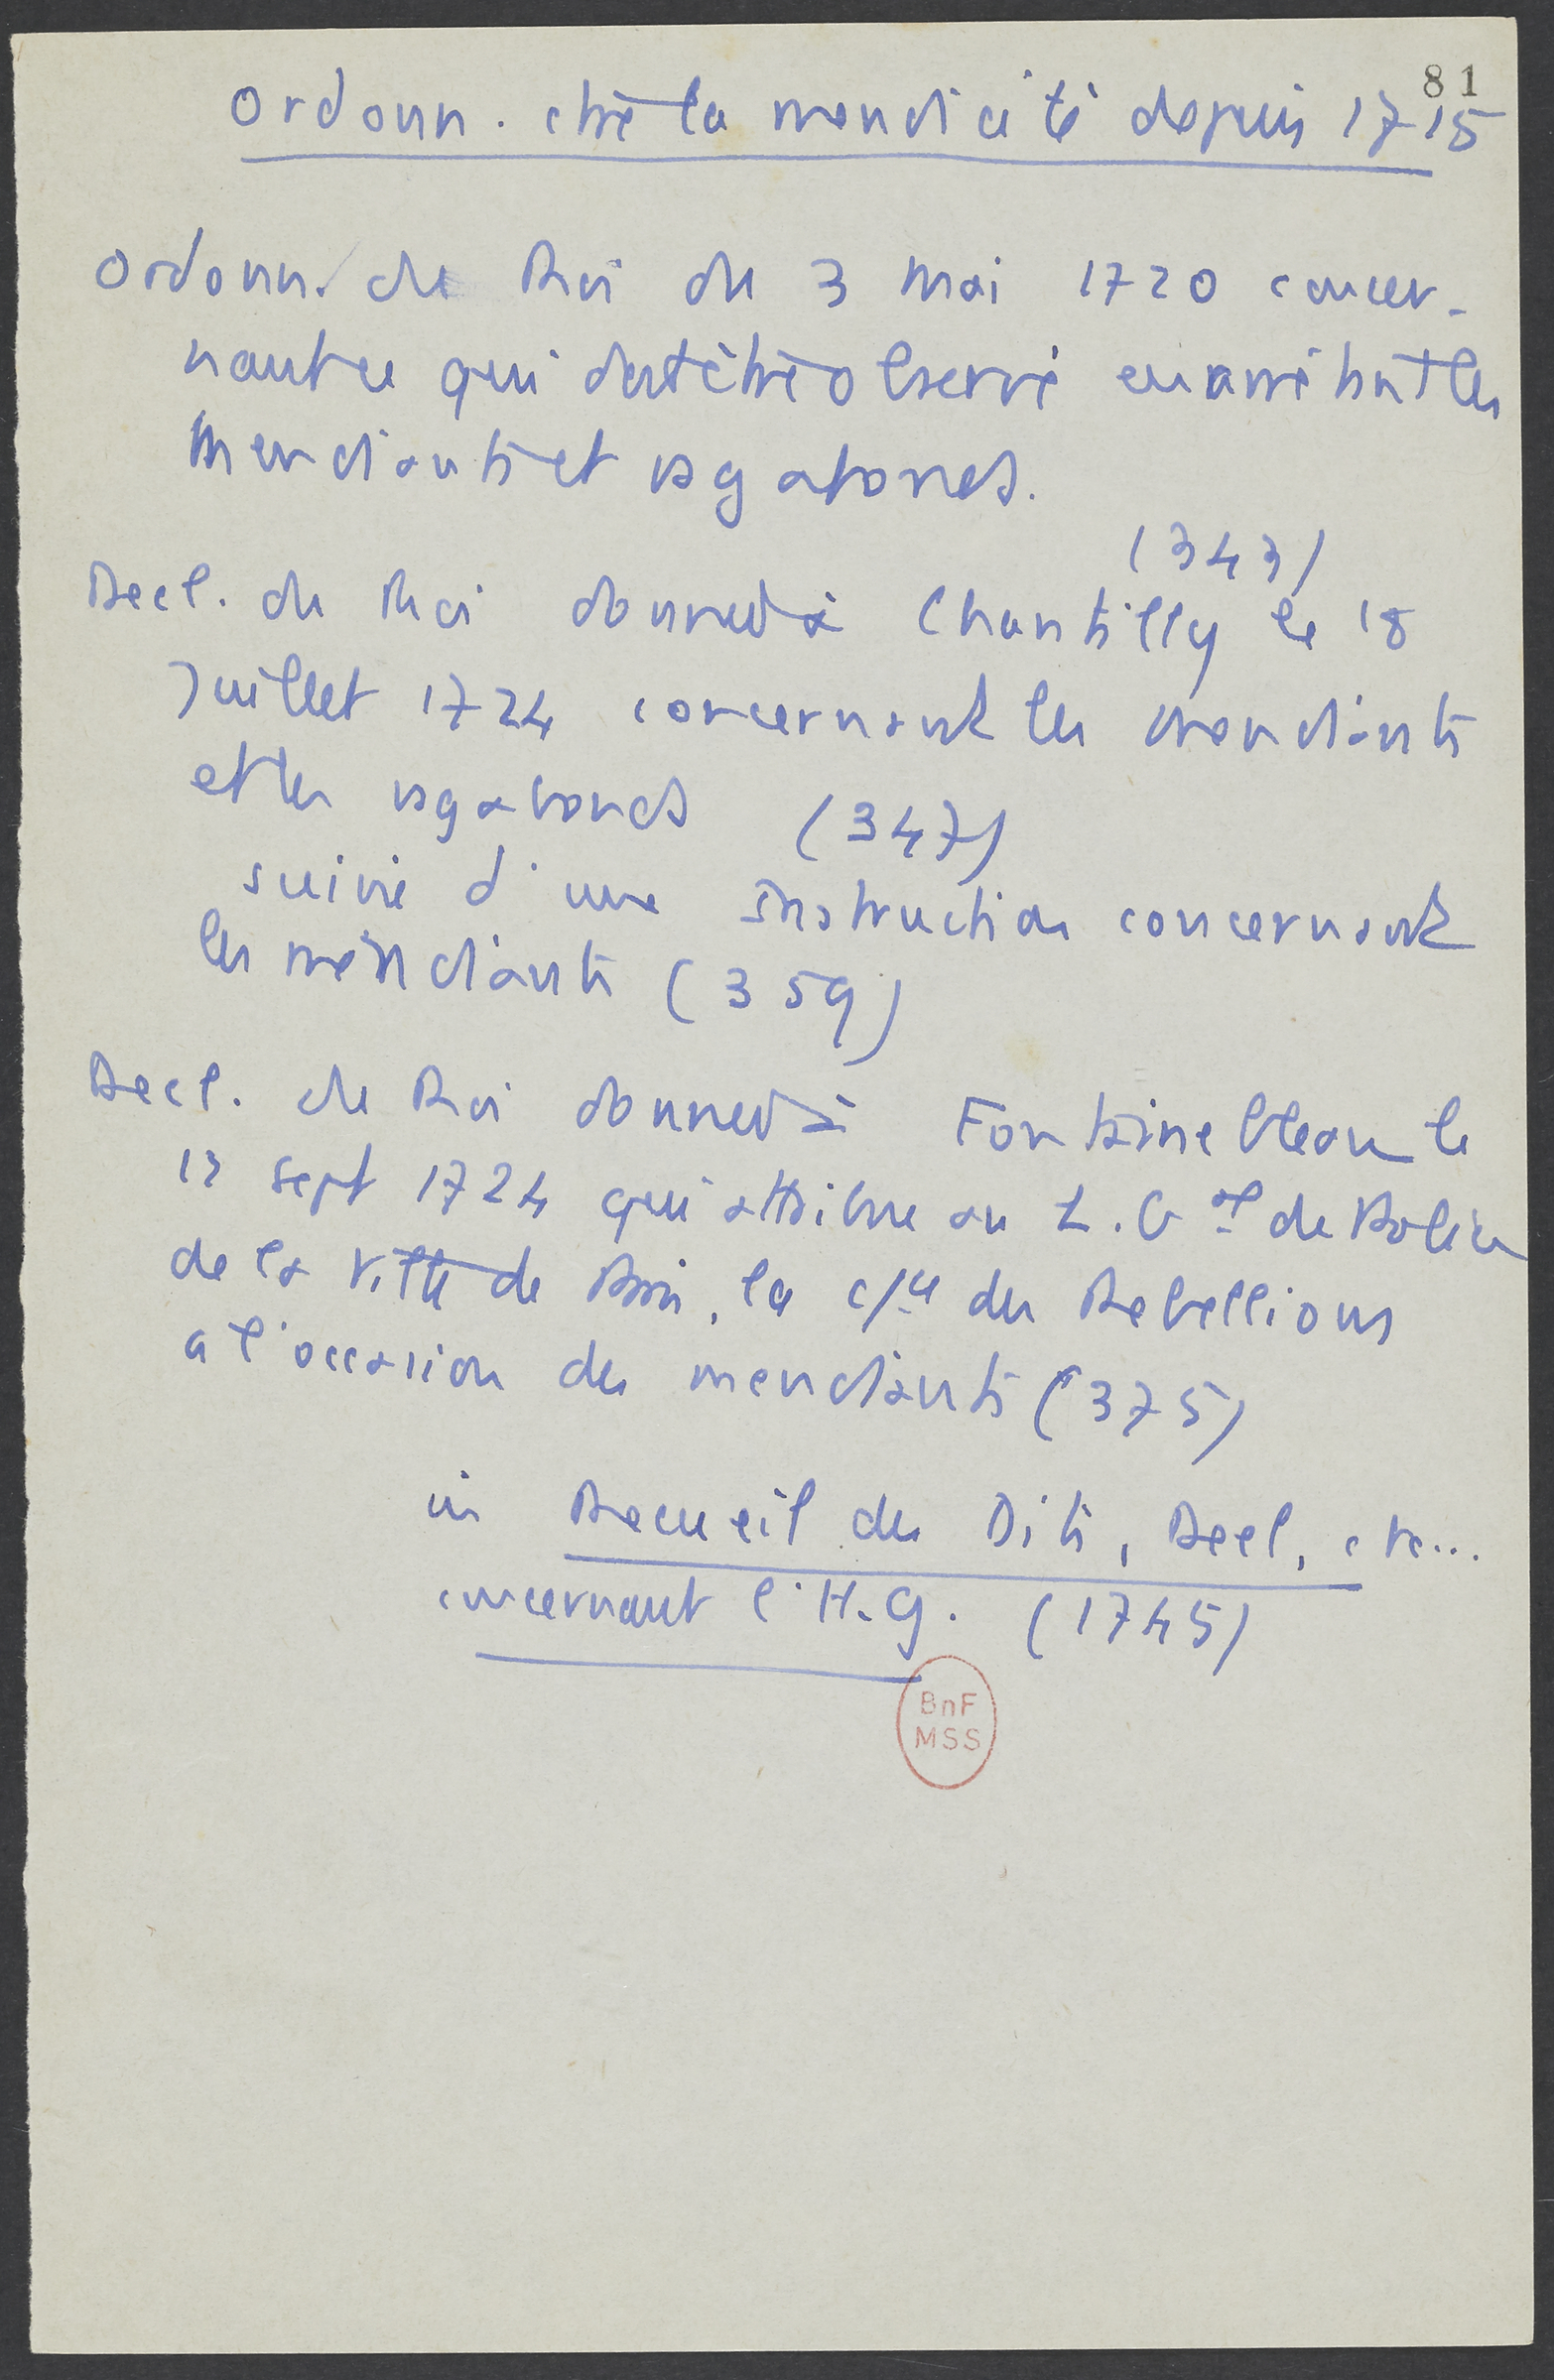 81
Ordonn. ctre la mendicité depuis 1715
Ordonn. du Roi du 3 mai 1720 concer-
nant ce qui doit être observé en arrêtant les
mendiants et vagabonds.
(343)
Decl. du Roi donnée à Chantilly le 18
Juillet 1724 concernant les mendiants
et les vagabonds (347)
suivie d'une Instruction concernant
les mendiants (359)
Decl. du Roi donnée à Fontainebleau le
13 sept 1724 qui attribue au L. Gal de Police
de la Ville de Paris, la c/ce des Rebellions
a l'occasion des mendiants (375)
in Recueil des Dits, Decl, etc...
concernant l'H.G. (1745)
BnF
MSS